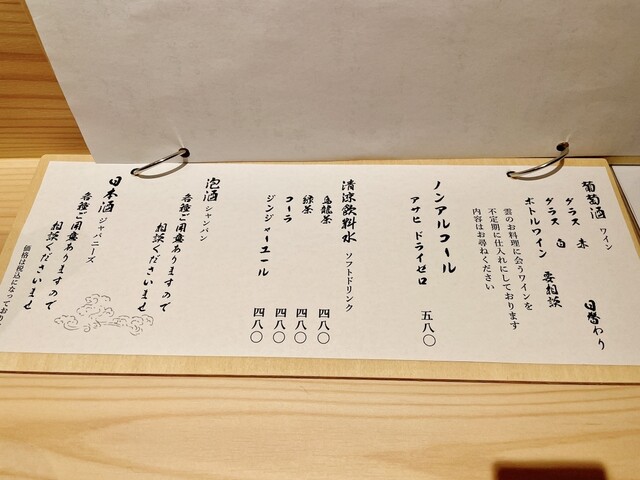 葡萄酒 ワイン
グラス 赤
グラス 白 日替わり
ボトルワイン 要相談
雲のお料理に会うワインを
不定期に仕入れにしております
内容はお尋ねください
ノンアルコール
アサヒ ドライゼロ 五八〇
清涼飲料水 ソフトドリンク
烏龍茶 四八〇
緑茶 四八〇
コーラ 四八〇
ジンジャーエール 四八〇
泡酒 シャンパン
各種ご用意ありますので
相談くださいませ
日本酒 ジャパニーズ
各種ご用意ありますので
相談くださいませ
価格は税込になっており